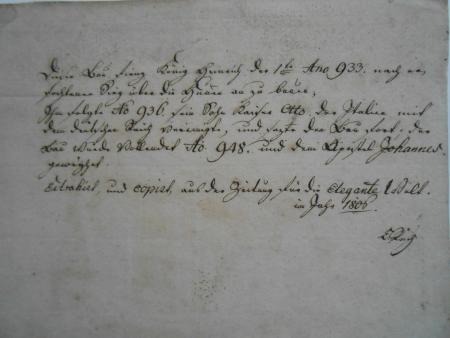 Diesen Bau fieng König Heinrich der 1te Ano 933. nach er,
fochtenen Sieg über die Hunnen an zu bauen,
Ihm folgte Ao 936. sein Sohn Kaiser Otto, der Italien mit
dem deutschen Reich vereinigte, und sezte den Bau fort. der
Bau wurde Vollendet Ao. 948. und dem Apostel Johannes
geweyhet.
Extrahirt, und copirt, aus der Zeitung für die elegante Welt.
im Jahr 1806.